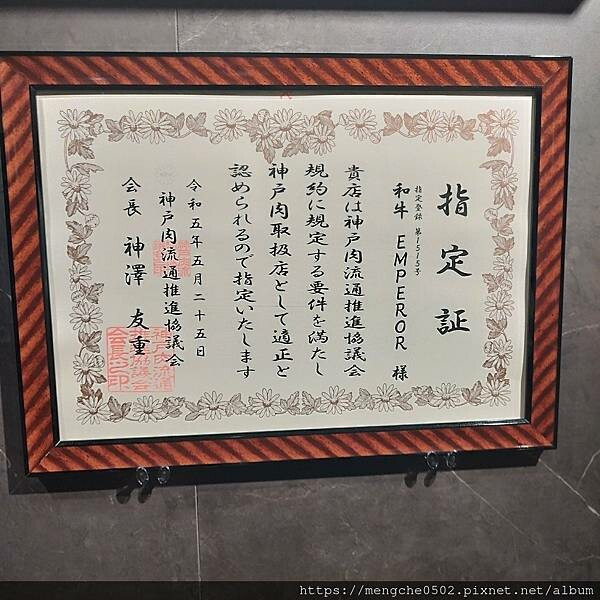 指定証
指定登録 第1515号
和牛 EMPEROR 様
貴店は神戸肉流通推進協議会
規約に規定する要件を満たし
神戸肉取扱店として適正と
認められるので指定いたします
令和五年五月二十五日
神戸肉流通推進協議会
会長 神澤 友重
https://mengche0502.pixnet.net/album